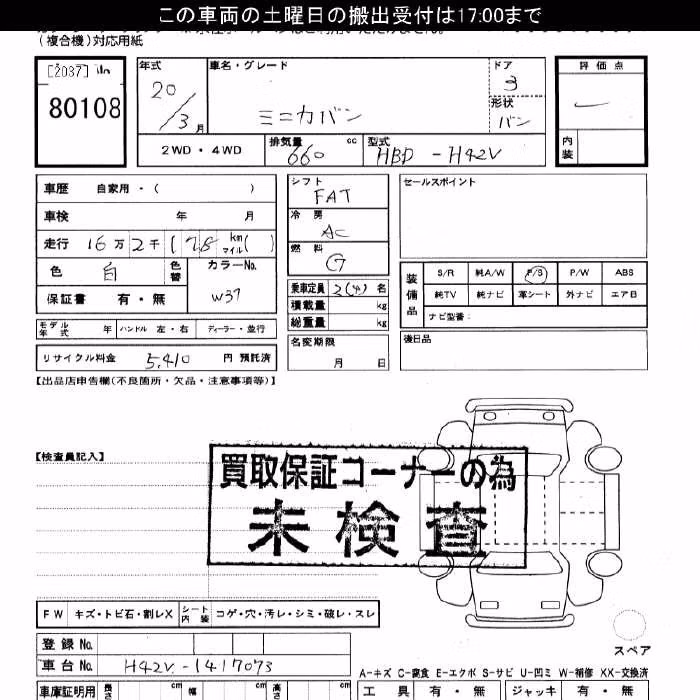 この車両の土曜日の搬出受付は17:00まで
(複合機)対応用紙
[2037]
80108
年式 20/3月
車名・グレード ミニカバン
ドア 3
形状 バン
評価点
内装
2WD・4WD
排気量 660 cc
型式 HBD-H42V
車歴 自家用・( )
車検 年 月
走行 16万2千178 km マイル( )
色 白 色替
カラーNo. W37
保証書 有・無
シフト FAT
冷房 AC
燃料 G
乗車定員 2(4)名
積載量 kg
総重量 kg
セールスポイント
装備品
S/R 純A/W P/S P/W ABS
純TV 純ナビ 革シート 外ナビ エア B
ナビ型番:
モデル年式 年 ハンドル 左・右 ディーラー・並行
リサイクル料金 5,410 円 預託済
名変期限 月 日
後日品
【出品店申告欄(不良箇所・欠品・注意事項等)】
【検査員記入】
買取保証コーナーの為
未検査
FW キズ・トビ石・割レX シート内装 コゲ・穴・汚レ・シミ・破レ・スレ
スペア
登録No.
車台No. H42V-1417073
A-キズ C-腐食 E-エクボ S-サビ U-凹ミ W-補修 XX-交換済
車庫証明用 長さ cm 幅 cm 高さ cm
工具 有・無 ジャッキ 有・無